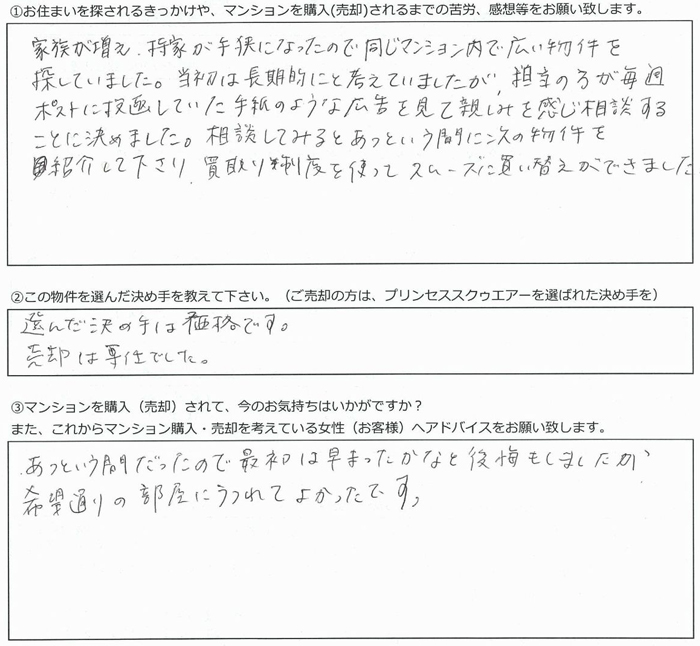 ①お住まいを探されるきっかけや、マンションを購入(売却)されるまでの苦労、感想等をお願い致します。
家族が増え、持家が手狭になったので同じマンション内で広い物件を
探していました。当初は長期的にと考えていましたが、担当の方が毎週
ポストに投函していた手紙のような広告を見て親しみを感じ相談する
ことに決めました。相談してみるとあっという間に次の物件を
紹介して下さり、買取り制度を使ってスムーズに買い替えができました
②この物件を選んだ決め手を教えて下さい。（ご売却の方は、プリンセススクゥエアーを選ばれた決め手を）
選んだ決め手は価格です。
売却は専任でした。
③マンションを購入（売却）されて、今のお気持ちはいかがですか？
また、これからマンション購入・売却を考えている女性（お客様）へアドバイスをお願い致します。
あっという間だったので最初は早まったかなと後悔もしましたが
希望通りの部屋にうつれてよかったです。